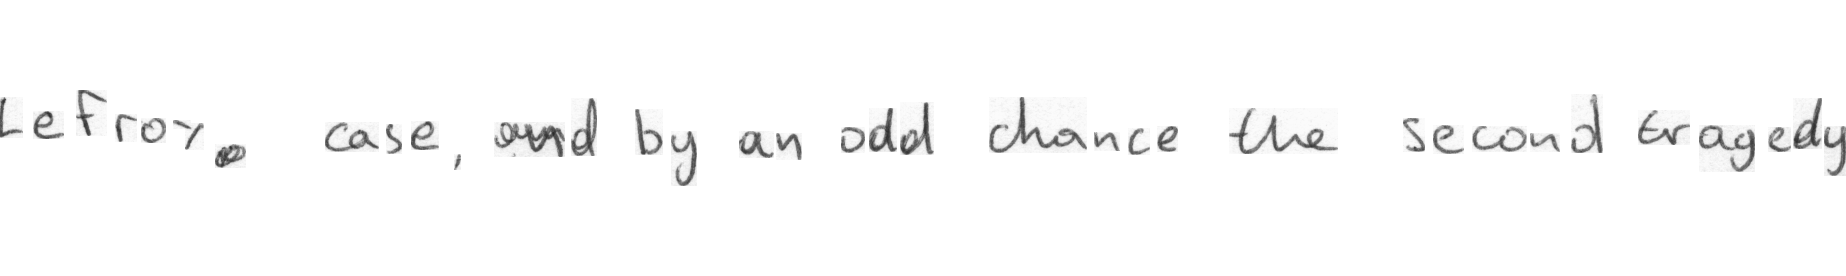 Lefroy. case, and by an odd chance the second tragedy